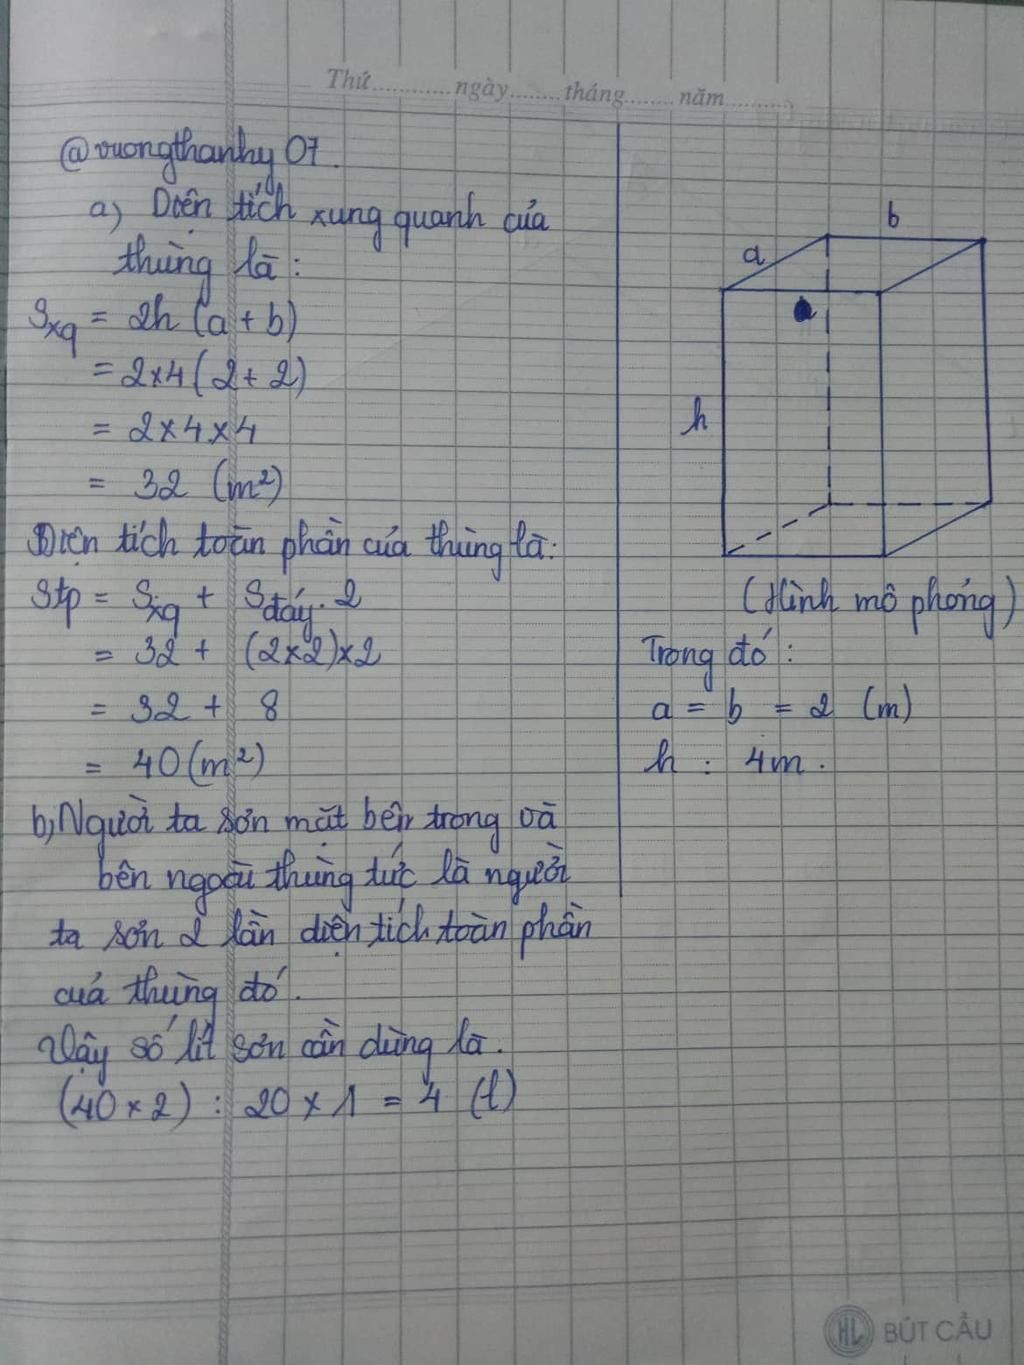 Thứ............ngày........tháng.......năm..........
@vuongthanhy 07.
a) Diện tích xung quanh của
thùng là:
Sxq = 2h (a + b)
= 2×4 (2 + 2)
= 2 × 4 × 4
= 32 (m²)
Diện tích toàn phần của thùng là:
Stp = Sxq + Sđáy . 2
= 32 + (2×2)×2
= 32 + 8
= 40 (m²)
b) Người ta sơn mặt bên trong và
bên ngoài thùng tức là người
ta sơn 2 lần diện tích toàn phần
của thùng đó.
Vậy số lít sơn cần dùng là.
(40 × 2) : 20 × 1 = 4 (l)
b
a
h
(Hình mô phỏng)
Trong đó:
a = b = 2 (m)
h : 4m.
HL BÚT CẨU